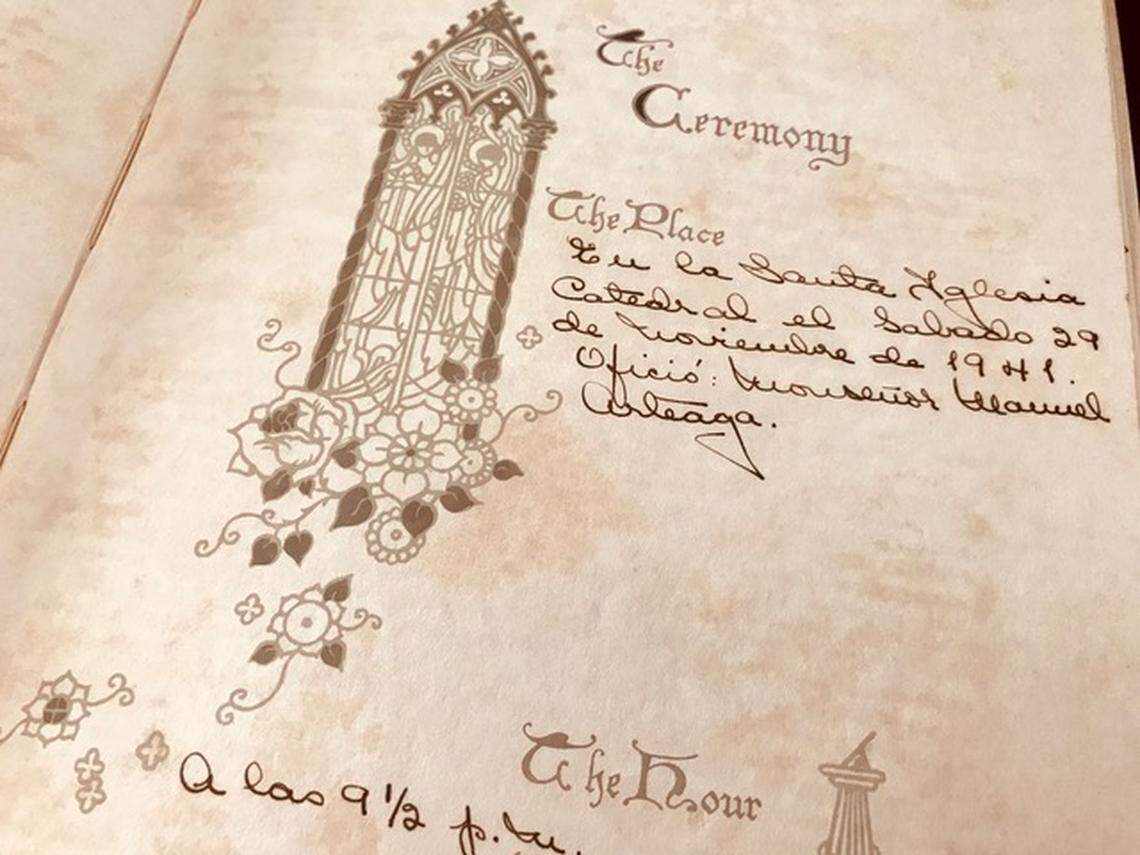 The
Ceremony
The Place
En la Santa Iglesia
Catedral el Sabado 29
de Noviembre de 1941.
Ofició: Monseñor Manuel
Arteaga.
The Hour
A las 9 1/2 p.m.